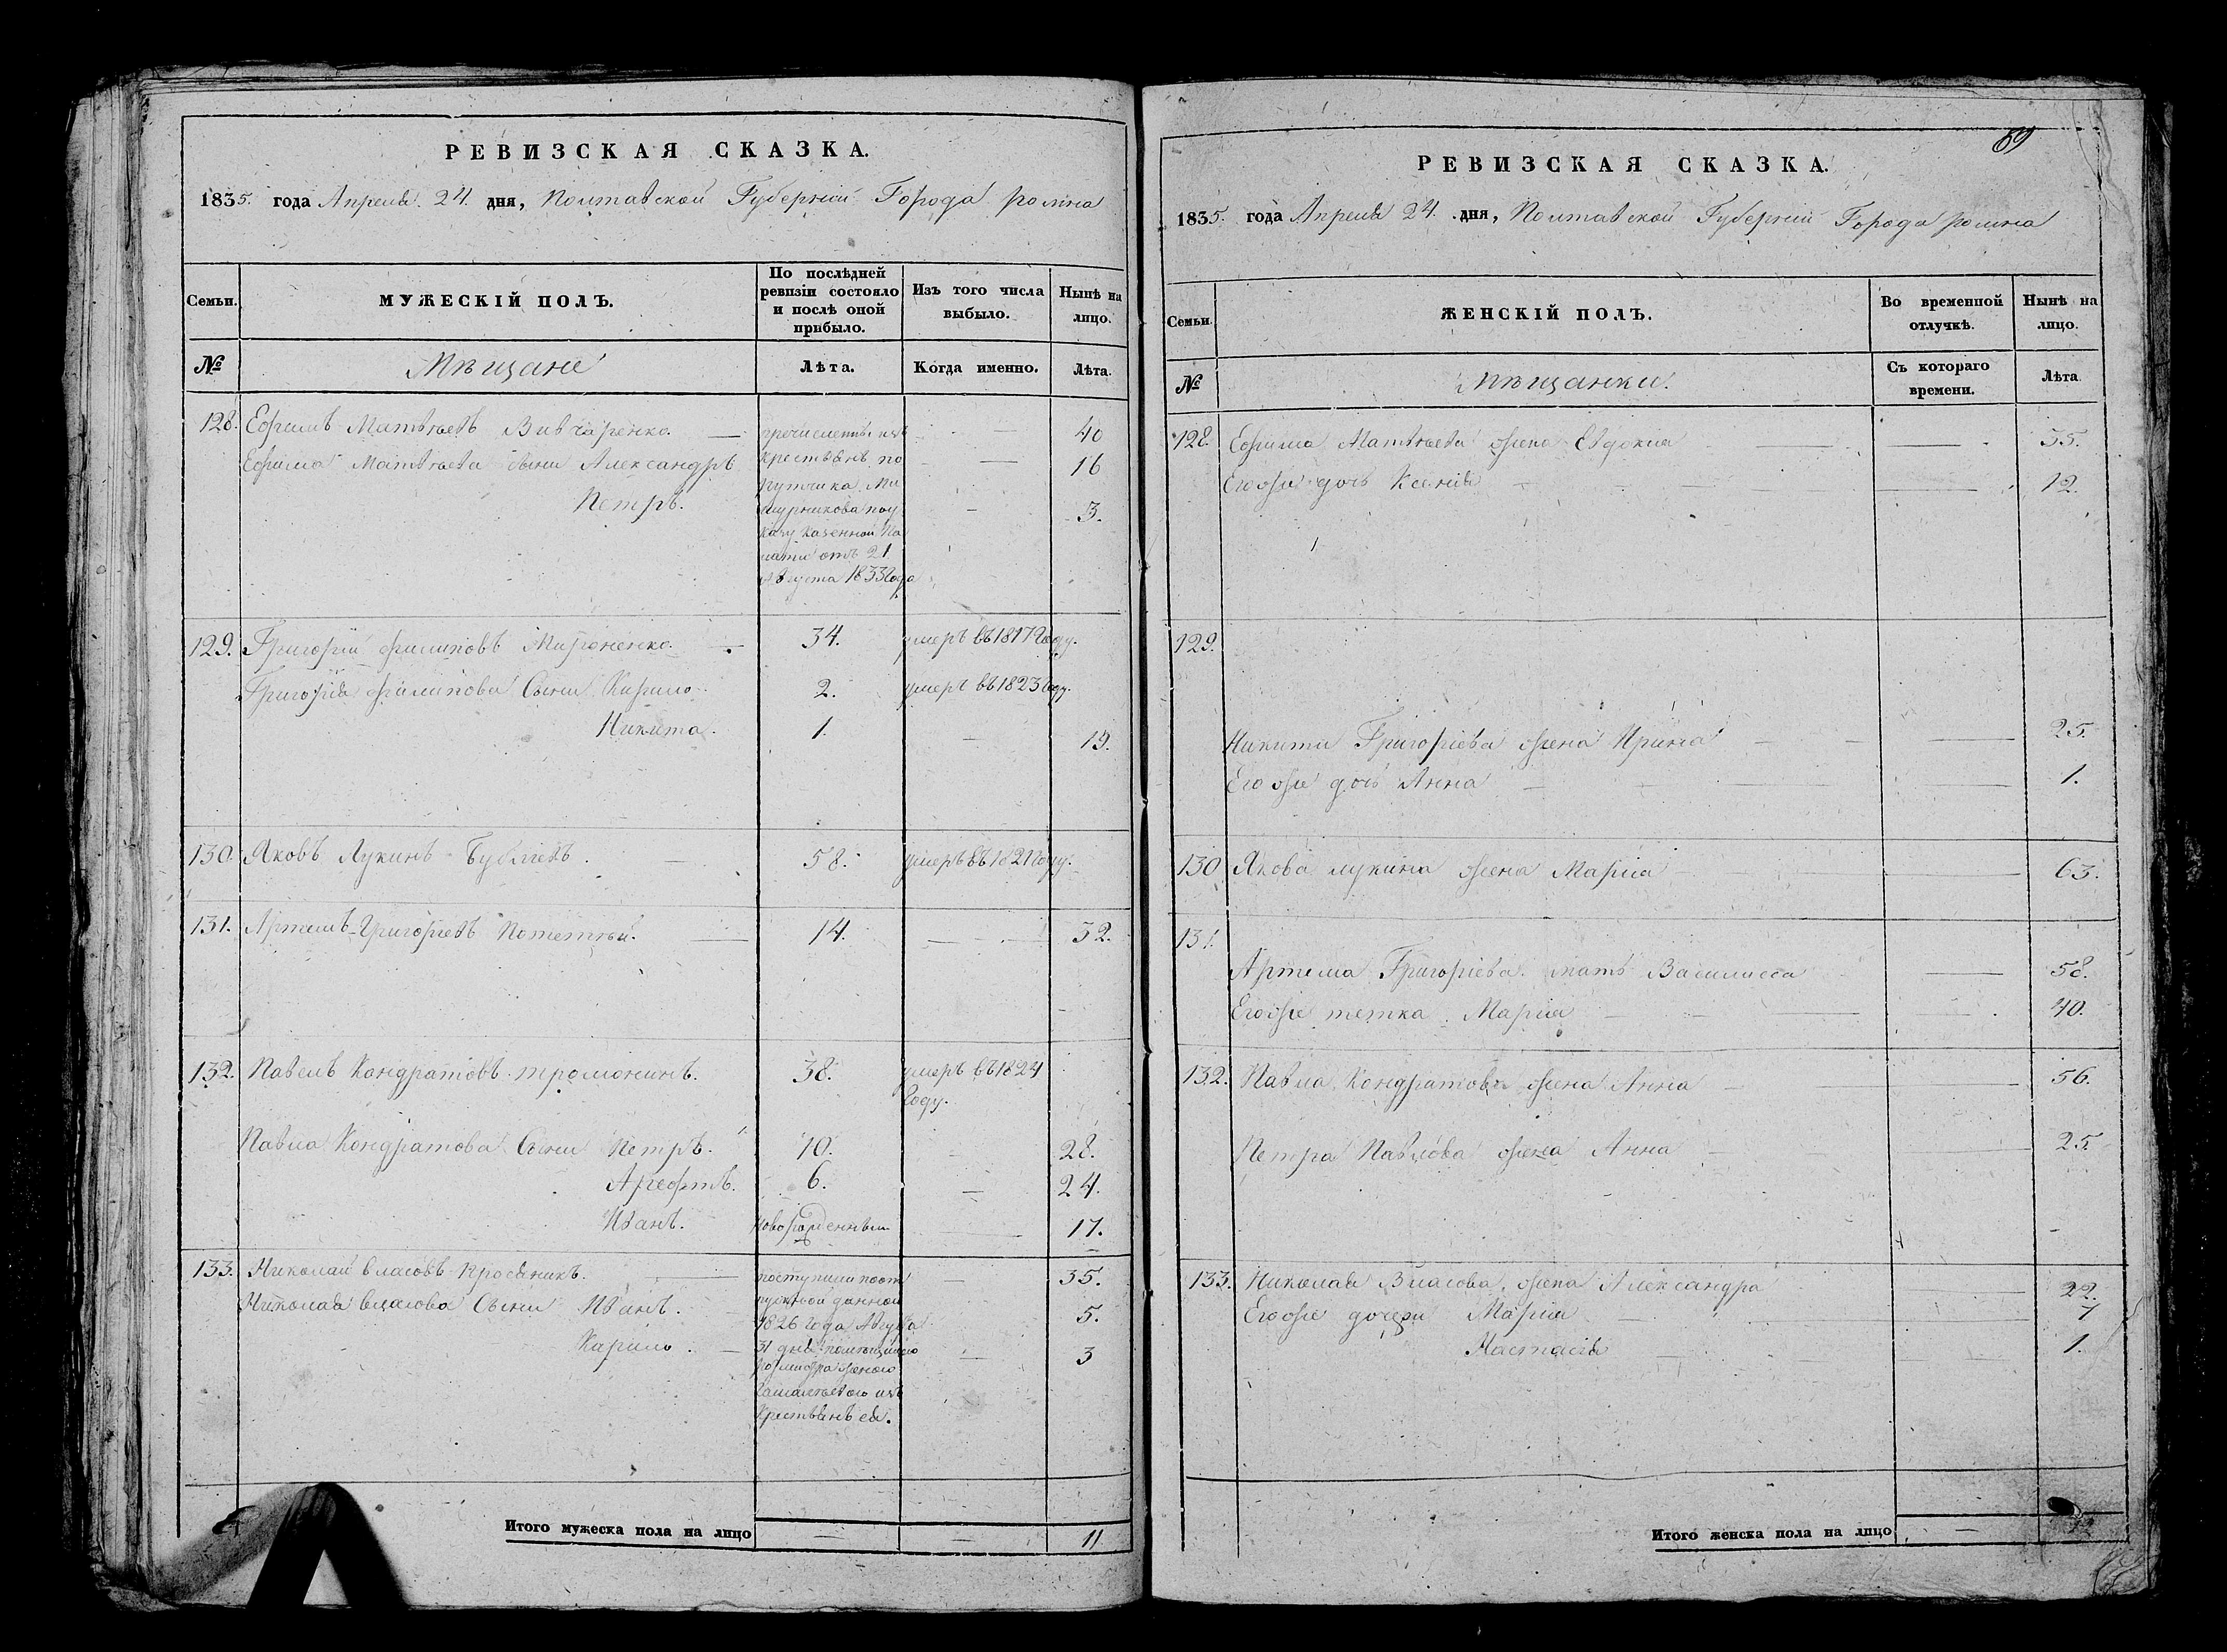 РЕВИЗСКАЯ СКАЗКА.
1835. года Апреля 24. дня, Полтавской Губернiи Города ромна
Семьи.
МУЖЕСКIЙ ПОЛЪ.
По послѣдней ревизiи состояло и послѣ оной прибыло.
Изъ того числа выбыло.
Нынѣ на лицо.
№
Мѣщане
Лѣта.
Когда именно.
Лѣта.
128. Ефимъ Матвѣевъ Вивчаренко. — 40
Ефима Матвѣева сыни Александръ — 16
Петръ. — 3.
причислены изъ
крестьянъ по
ручика
казенной Па
латы отъ 21
Августа 1833 Года
129. Григорiй филиповъ Мироненко. 34. умеръ въ 1817 Году.
Григорiя филипова Сыни Кирило. 2. умеръ въ 1823 Году.
Никита. 1. — 19.
130. Яковъ Лукинъ Бублiевъ. 58. умеръ въ 1821 Году.
131. Артемъ Григорiевъ 14. — 32.
132. Павелъ Кондратовъ 38. умеръ въ 1824
Году.
Павла Кондратова Сыни Петръ. 10. 28.
6. — 24.
Иванъ. новорожденный — 17.
133. Николай власовъ — 35.
Николая власова Сыни Иванъ. — 5.
Кирило. — 3
поступили по от
пускной данной
1826 Года Августа
31 дня
изъ
Крестьянъ ея.
Итого мужеска пола на лицо — — 11
69
РЕВИЗСКАЯ СКАЗКА.
1835. года Апреля 24. дня, Полтавской Губернiи Города ромна
Семьи.
ЖЕНСКIЙ ПОЛЪ.
Во временной отлучкѣ.
Нынѣ на лицо.
№
Мѣщанки.
Съ котораго времени.
Лѣта.
128. Ефима Матвѣева жена Евдокия — 35.
Егоже дочь Ксенiя — 12.
129.
Никити Григорiева жена Ирина — 25.
Егоже дочь Анна — 1.
130 Якова лукина жена Марiя — 63.
131.
Артема Григорiева мать Василиса — 58.
Егоже тетка Марiя — 40.
132. Павла Кондратова жена Анна — 56.
Петра Павлова жена Анна — 25.
133. Николая Власова жена Александра — 22.
Егоже дочери Марiя — 7
Настасiя — 1.
Итого женска пола на лицо — 12